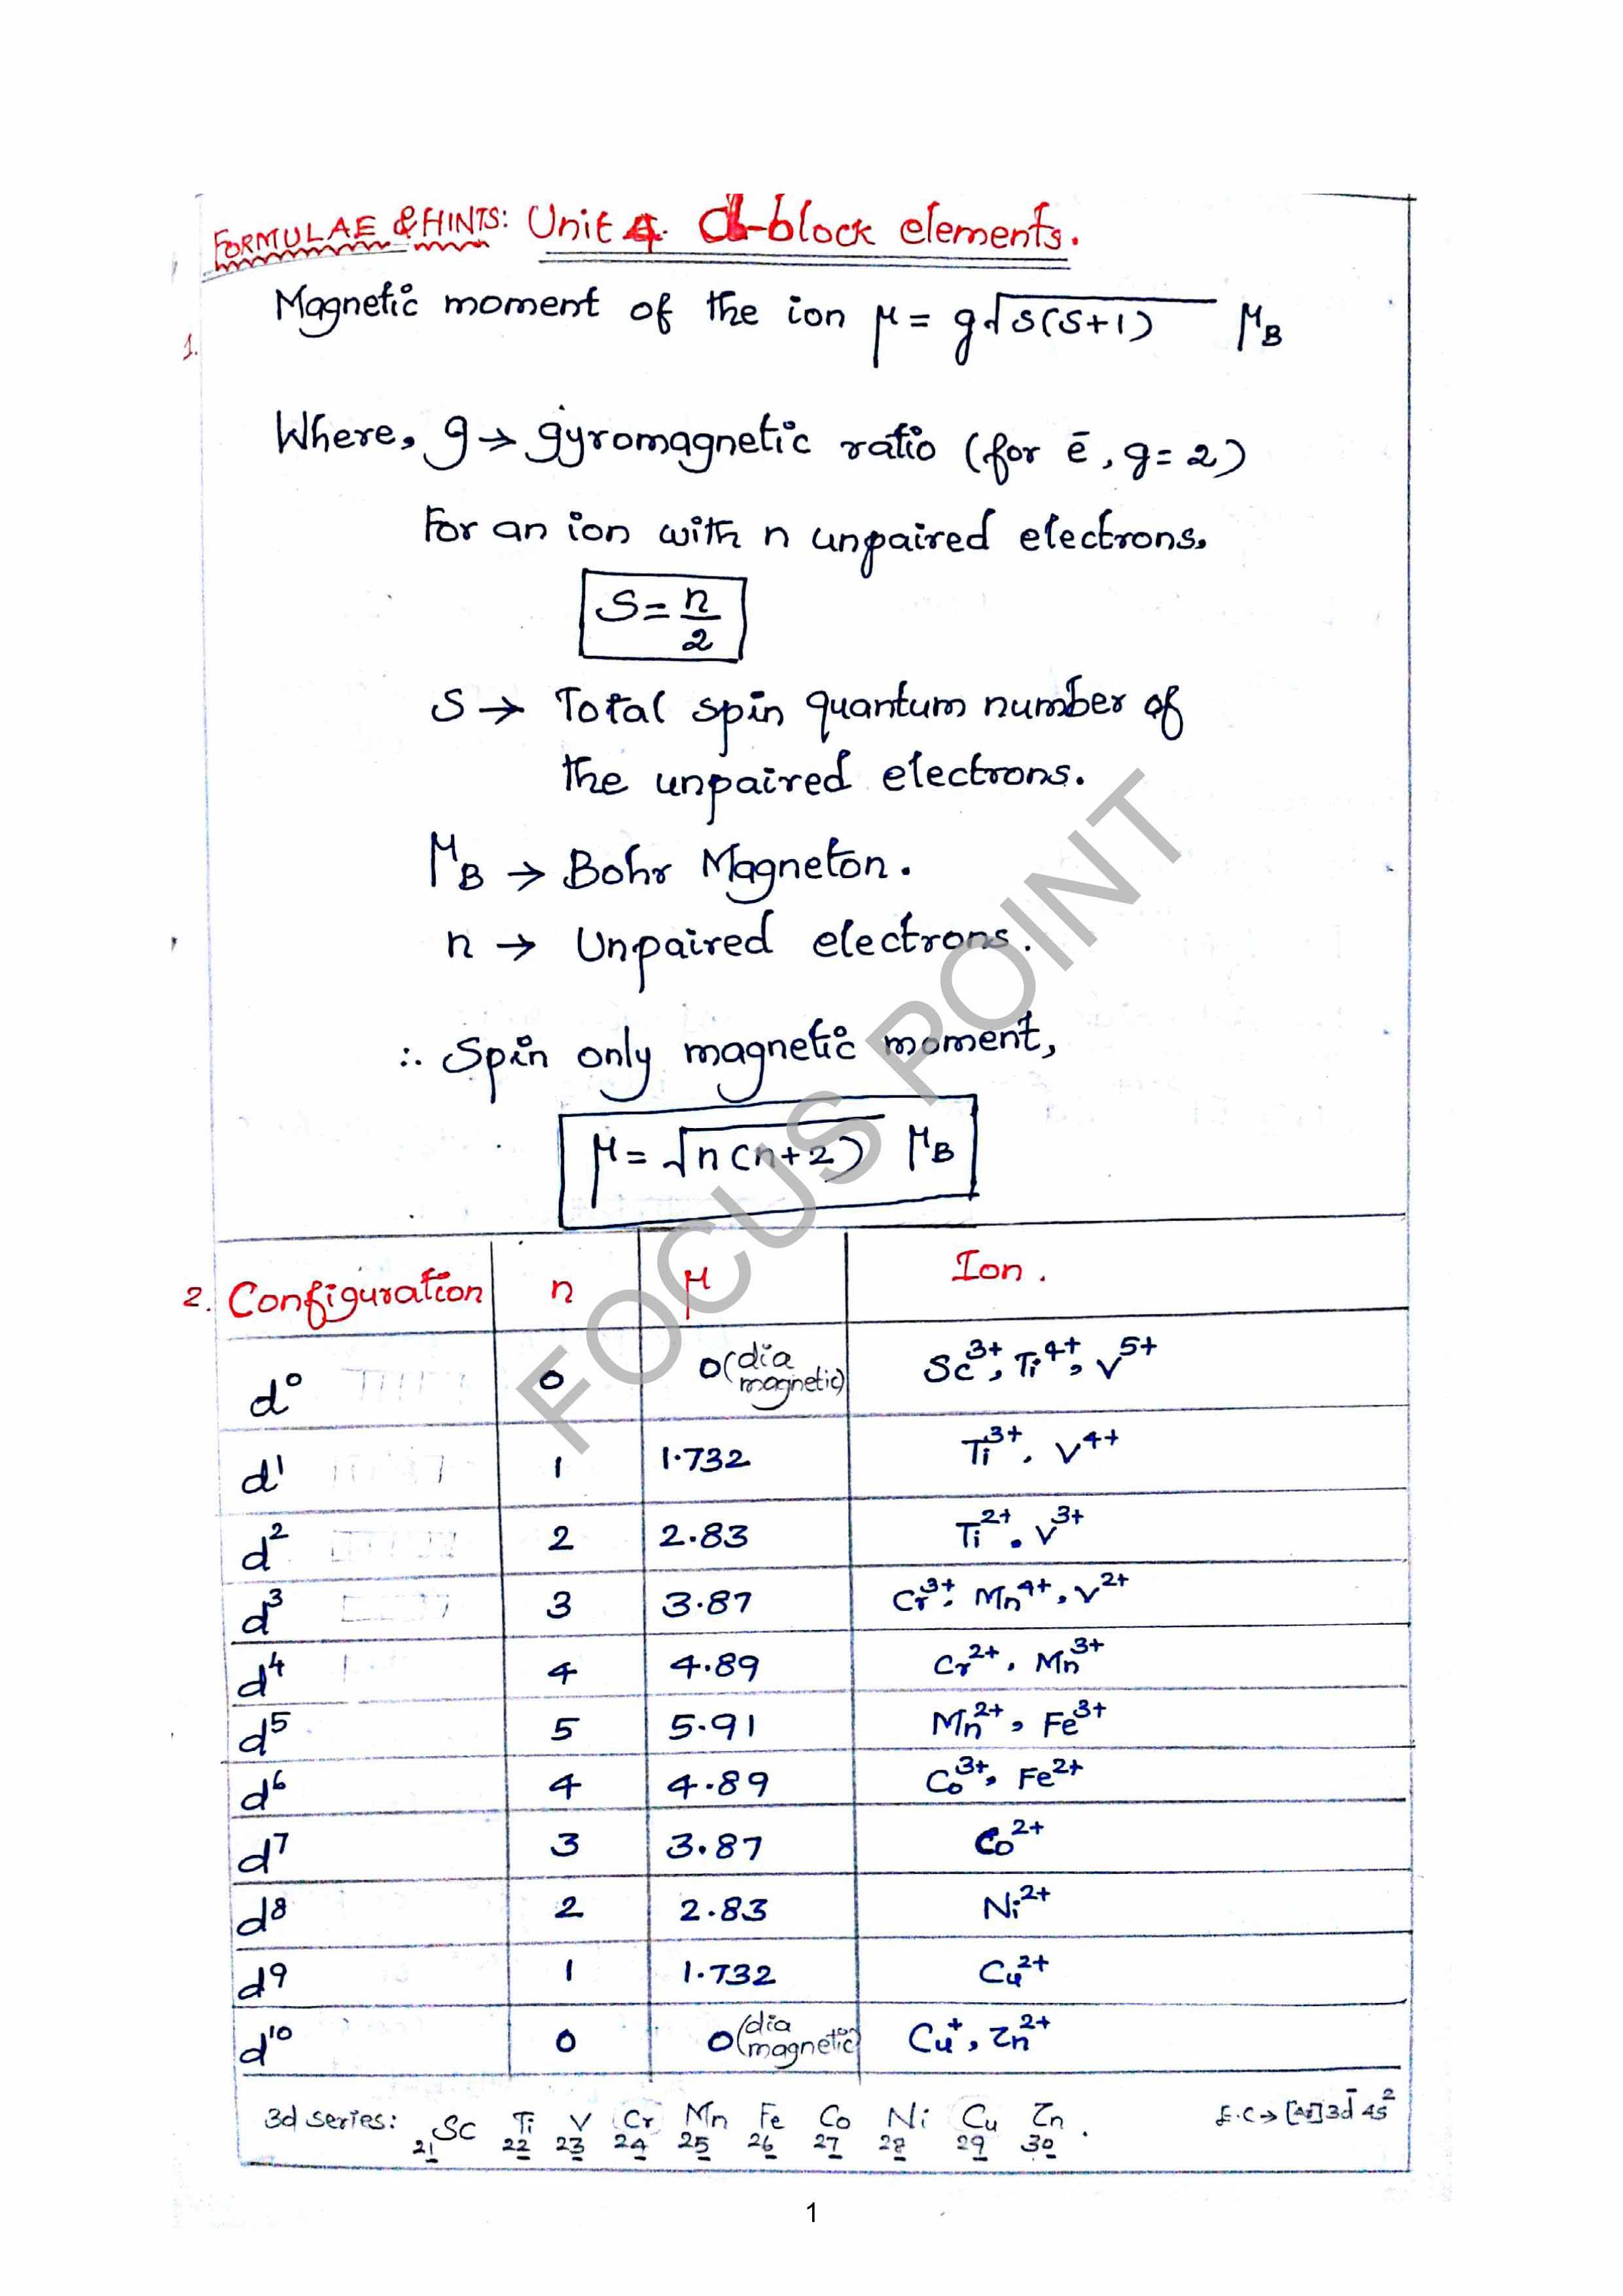 FORMULAE & HINTS: Unit 4. d-block elements.
1. Magnetic moment of the ion μ = g√S(S+1) μB
Where, g → gyromagnetic ratio (for ē, g = 2)
For an ion with n unpaired electrons.
S = n/2
S → Total spin quantum number of
the unpaired electrons.
μB → Bohr Magneton.
n → Unpaired electrons.
∴ Spin only magnetic moment,
μ = √n(n+2) μB
FOCUS POINT
2. Configuration n μ Ion.
d⁰ 0 0 (dia magnetic) Sc³⁺, Ti⁴⁺, V⁵⁺
d¹ 1 1.732 Ti³⁺, V⁴⁺
d² 2 2.83 Ti²⁺, V³⁺
d³ 3 3.87 Cr³⁺, Mn⁴⁺, V²⁺
d⁴ 4 4.89 Cr²⁺, Mn³⁺
d⁵ 5 5.91 Mn²⁺, Fe³⁺
d⁶ 4 4.89 Co³⁺, Fe²⁺
d⁷ 3 3.87 Co²⁺
d⁸ 2 2.83 Ni²⁺
d⁹ 1 1.732 Cu²⁺
d¹⁰ 0 0 (dia magnetic) Cu⁺, Zn²⁺
3d series: Sc Ti V Cr Mn Fe Co Ni Cu Zn. E.C → [Ar] 3d⁻ 4s²
21 22 23 24 25 26 27 28 29 30
1